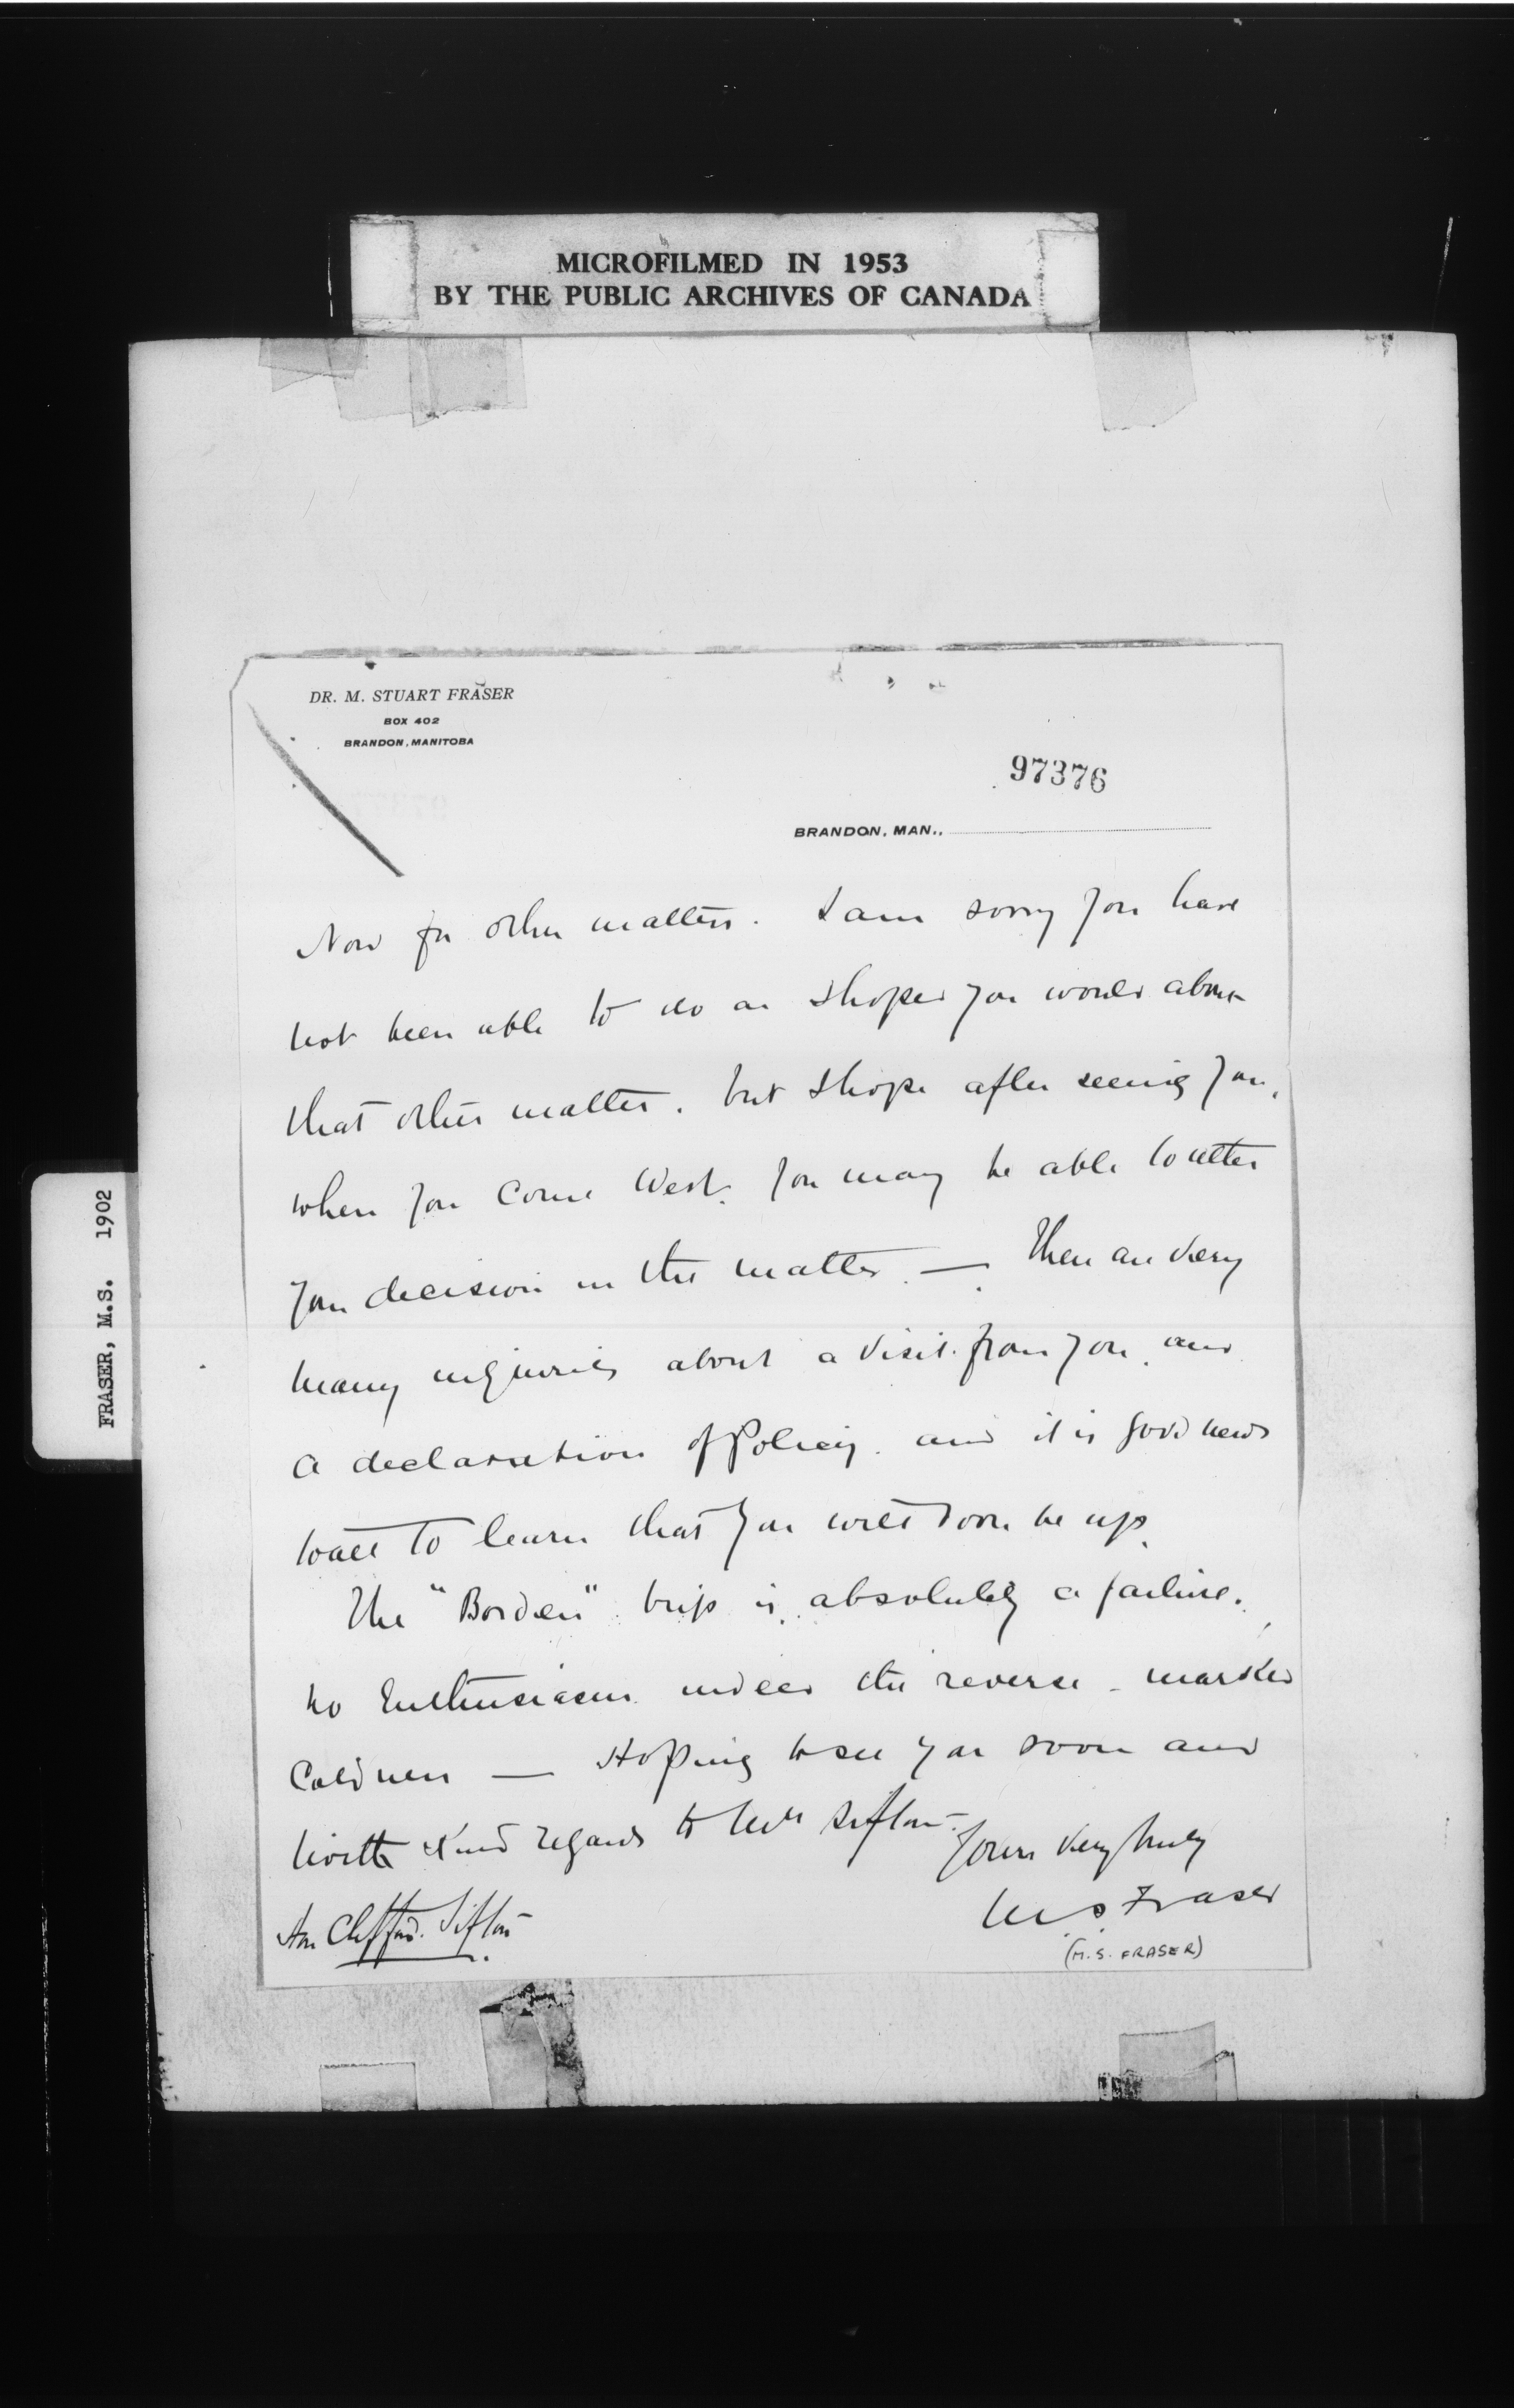 MICROFILMED IN 1953
BY THE PUBLIC ARCHIVES OF CANADA
FRASER, M.S. 1902
DR. M. STUART FRASER
BOX 402
BRANDON, MANITOBA
97376
BRANDON, MAN.,
Now for other matters. I am sorry you have
not been able to do as I hoped you would about
that other matter. but I hope after seeing you,
when you come West. you may be able to alter
your decision in the matter. — There are very
many inquiries about a visit from you and
a declaration of Policy. and it is good news
to all to learn that you will soon be up.
The "Borden" trip is absolutely a failure.
no Enthusiasm indeed the reverse - marked
Coldness — Hoping to see you soon and
with Kind regards to Mrs Sifton.
Yours very truly
M S Fraser
(M. S. FRASER)
Hon Clifford Sifton